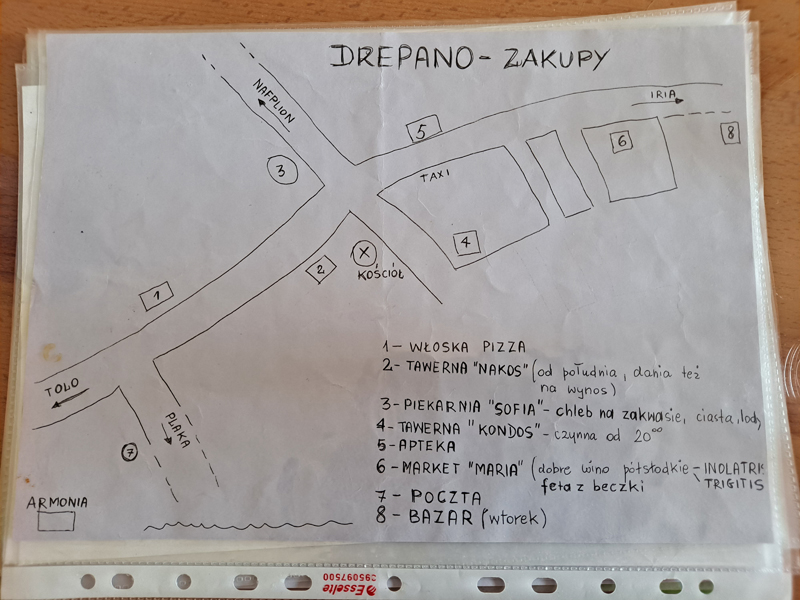 DREPANO - ZAKUPY
NAFPLION
IRIA
5
6
8
3
TAXI
4
X
KOŚCIÓŁ
2
1
TOLO
PLAKA
7
ARMONIA
1 - WŁOSKA PIZZA
2 - TAWERNA "NAKOS" (od południa, dania też
na wynos)
3 - PIEKARNIA "SOFIA" - chleb na zakwasie, ciasta, lody
4 - TAWERNA "KONDOS" - czynna od 20°°
5 - APTEKA
6 - MARKET "MARIA" (dobre wino półsłodkie - INOLATRIS
feta z beczki TRIGITIS
7 - POCZTA
8 - BAZAR (wtorek)
Esselte
395097500